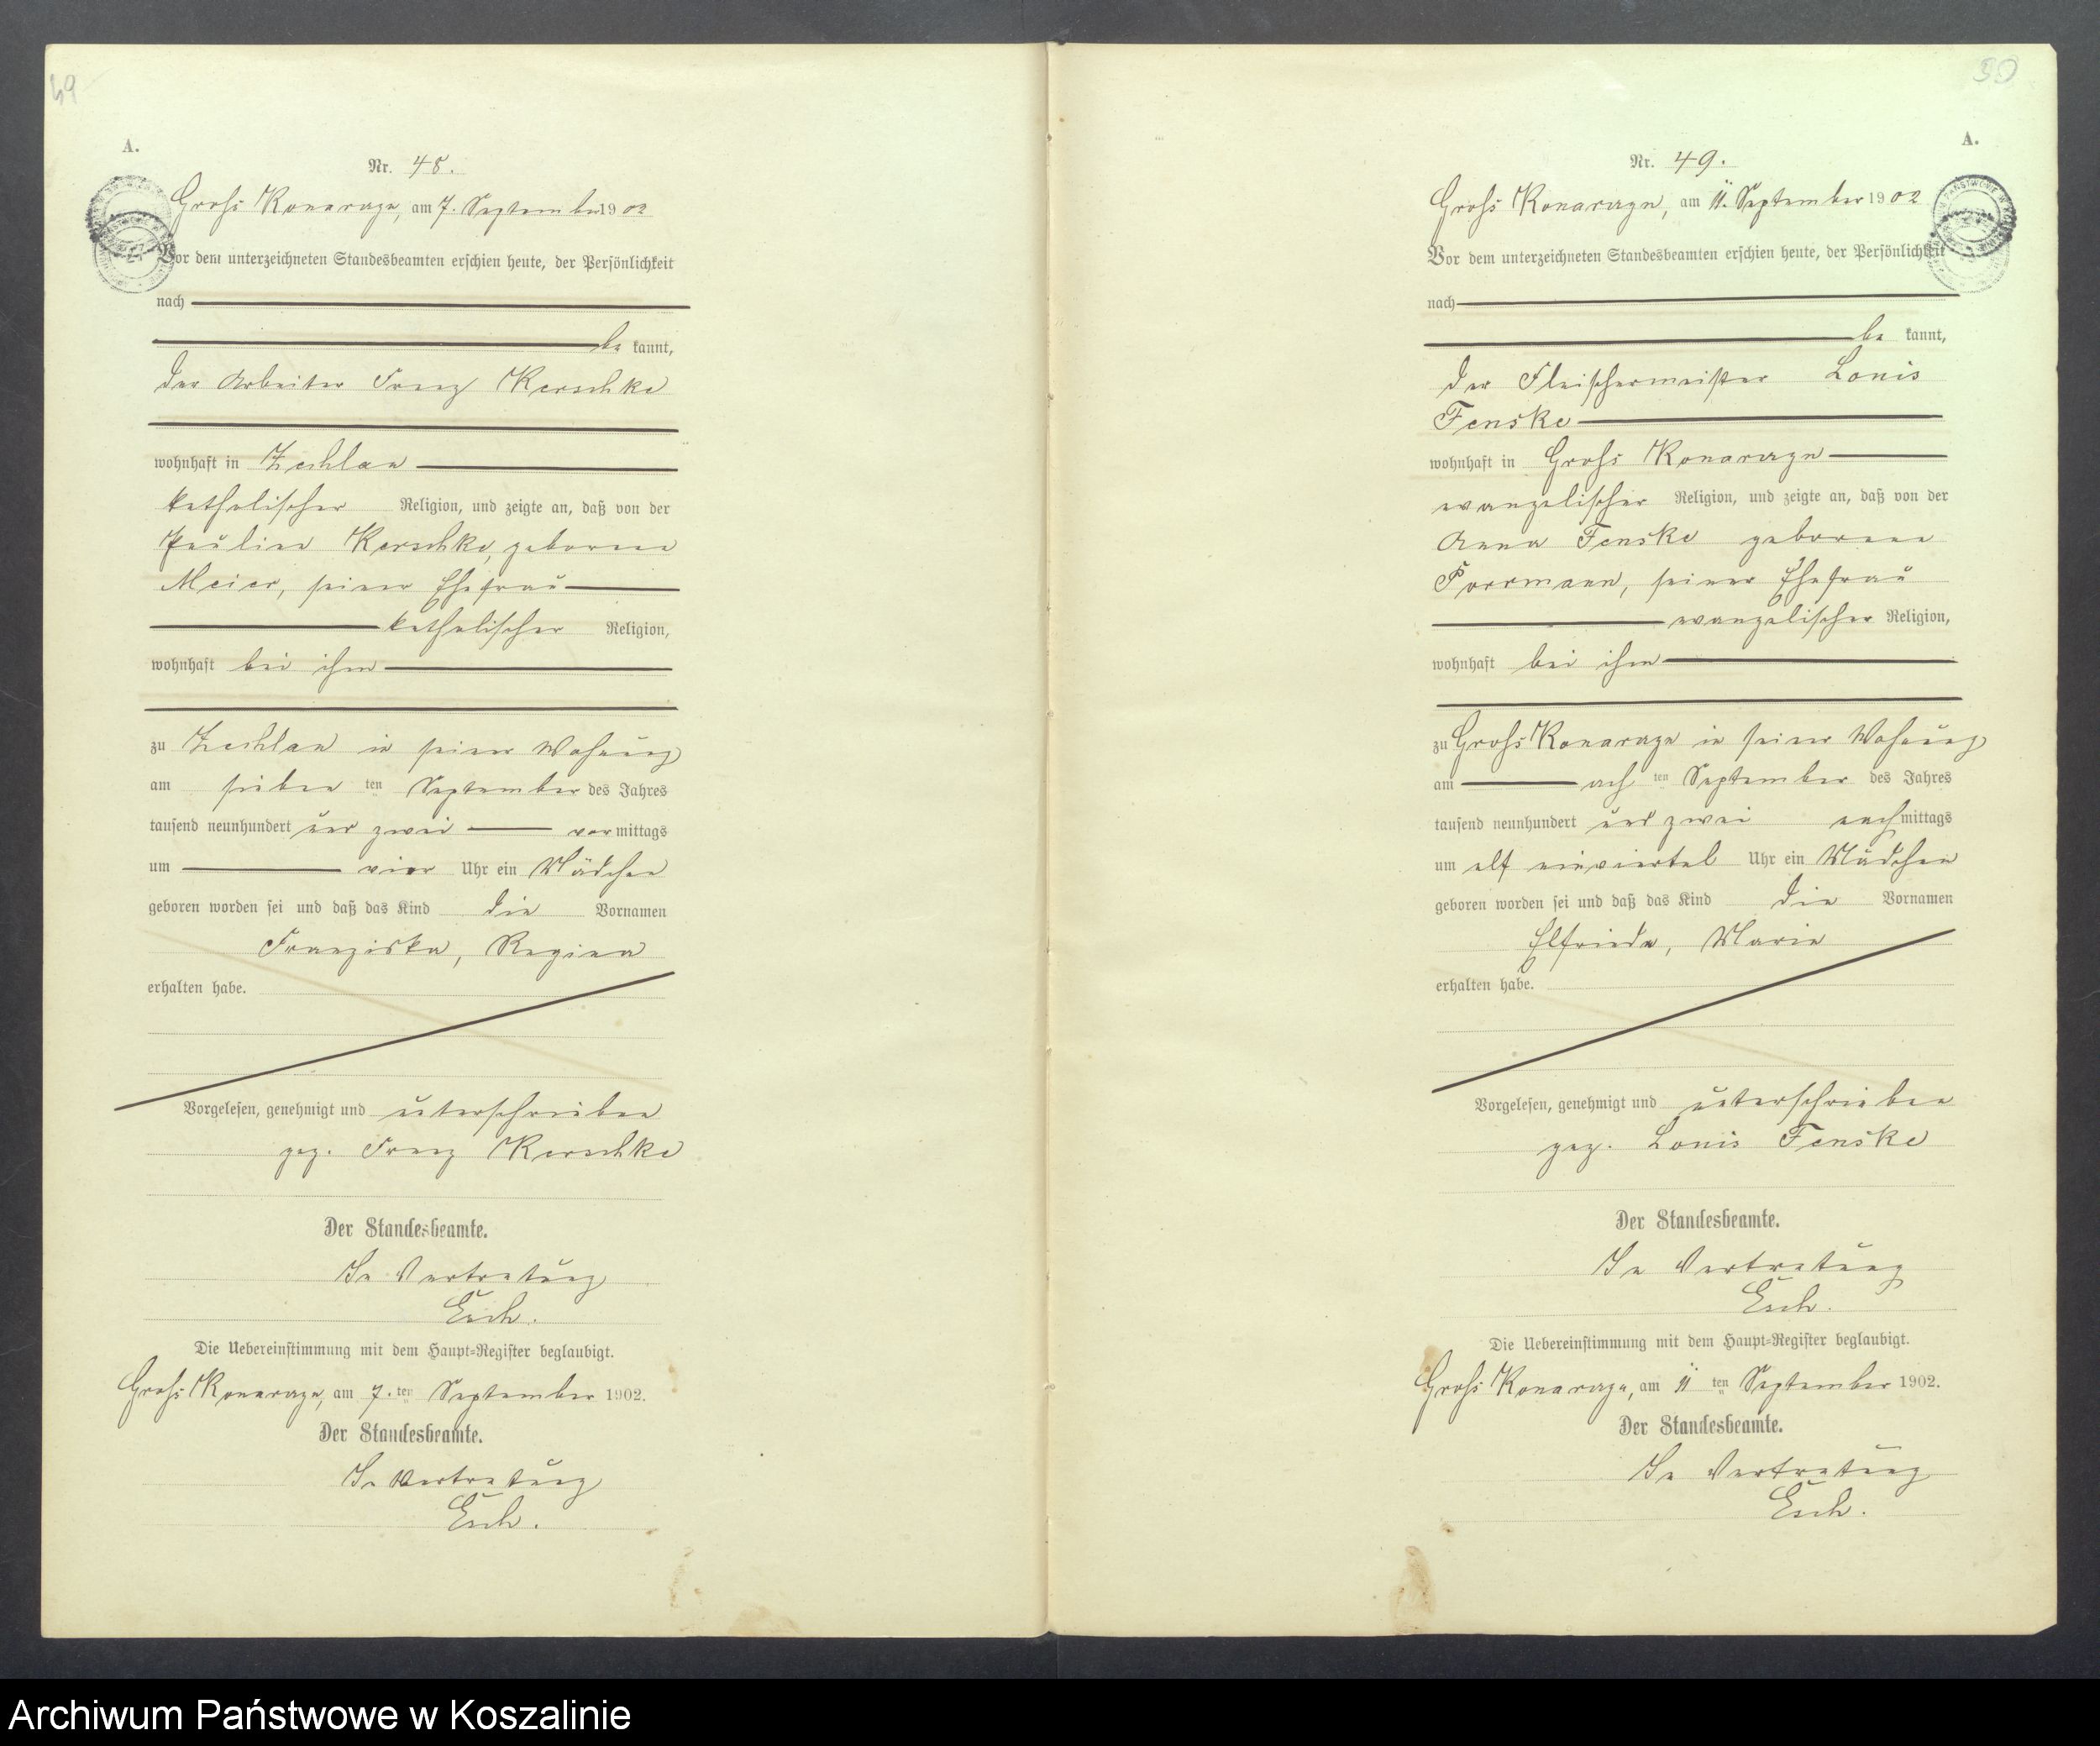 A.
Nr. 48.
Groß Konarzyn, am 7. September 1902
Vor dem unterzeichneten Standesbeamten erschien heute, der Persönlichkeit
nach
be kannt,
der Arbeiter Franz Kerschke
wohnhaft in Zechlau
katholischer Religion, und zeigte an, daß von der
Pauline Kerschke, geborene
Meier, seiner Ehefrau
katholischer Religion,
wohnhaft bei ihm
zu Zechlau in seiner Wohnung
am sieben ten September des Jahres
tausend neunhundert und zwei vor mittags
um vier Uhr ein Mädchen
geboren worden sei und daß das Kind die Vornamen
Franziska, Regina
erhalten habe.
Vorgelesen, genehmigt und unterschrieben
gez. Franz Kerschke
Der Standesbeamte.
In Vertretung
Esch.
Die Uebereinstimmung mit dem Haupt-Register beglaubigt.
Groß Konarzyn, am 7. ten September 1902.
Der Standesbeamte.
In Vertretung
Esch.
A.
Nr. 49.
Groß Konarzyn, am 11. September 1902
Vor dem unterzeichneten Standesbeamten erschien heute, der Persönlichkeit
nach
be kannt,
der Fleischermeister Louis
Fenske
wohnhaft in Groß Konarzyn
evangelischer Religion, und zeigte an, daß von der
Anna Fenske geborene
Porrmann, seiner Ehefrau
evangelischer Religion,
wohnhaft bei ihm
zu Groß Konarzyn in seiner Wohnung
am ach ten September des Jahres
tausend neunhundert und zwei nach mittags
um elf einviertel Uhr ein Mädchen
geboren worden sei und daß das Kind die Vornamen
Elfriede, Marie
erhalten habe.
Vorgelesen, genehmigt und unterschrieben
gez. Louis Fenske
Der Standesbeamte.
In Vertretung
Esch.
Die Uebereinstimmung mit dem Haupt-Register beglaubigt.
Groß Konarzyn, am 11 ten September 1902.
Der Standesbeamte.
In Vertretung
Esch.
Archiwum Państwowe w Koszalinie